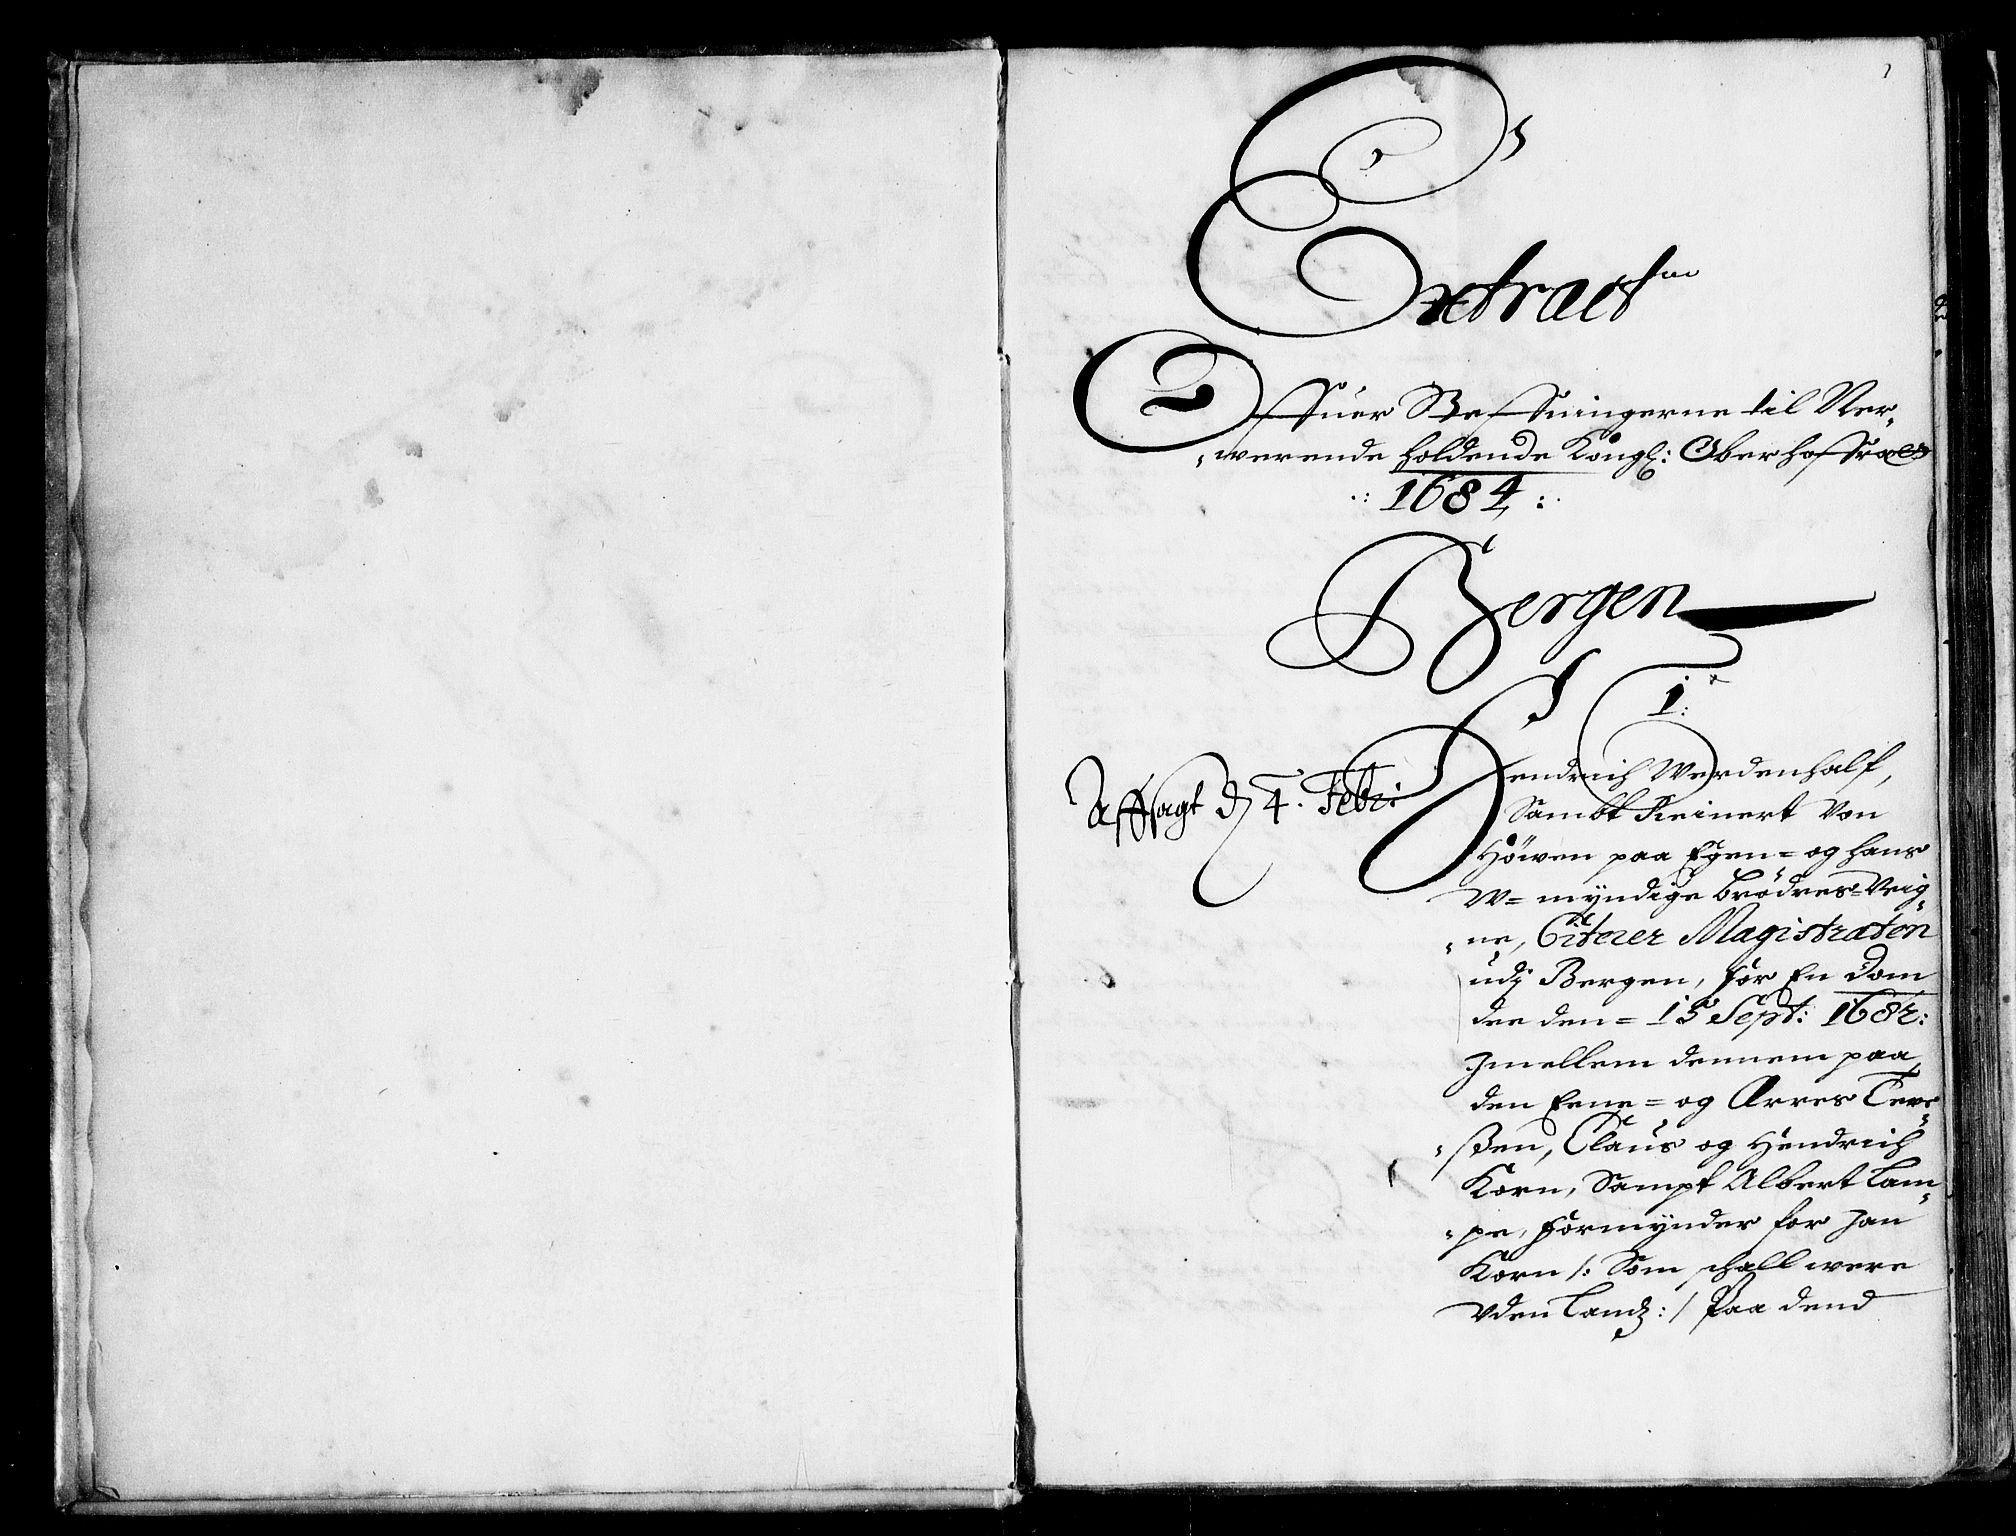 1
Extract
Offuer Steffningerne til Ner„
„werende holdende Kongl: Oberhoffræt
.: 1684 :.
Bergen
1:
Affsagt d 4. Febr:
Hendrich Werdenhalf,
Sambt Reinert Von
Höwen paa Egen= og hans
W= myndige brödres= Veig„
„ne, Citerer Magistraten
udj Bergen, for En dom
dee den= 15 Sept: 1682:
Jmellem dennem paa
den Eene= og Arres
„ßen, Claus og Hendrich
Korn, Sampt Albert Lam„
„pe, formynder for Jan
Korn /: Som schall were
Uden Landz: / Paa dend